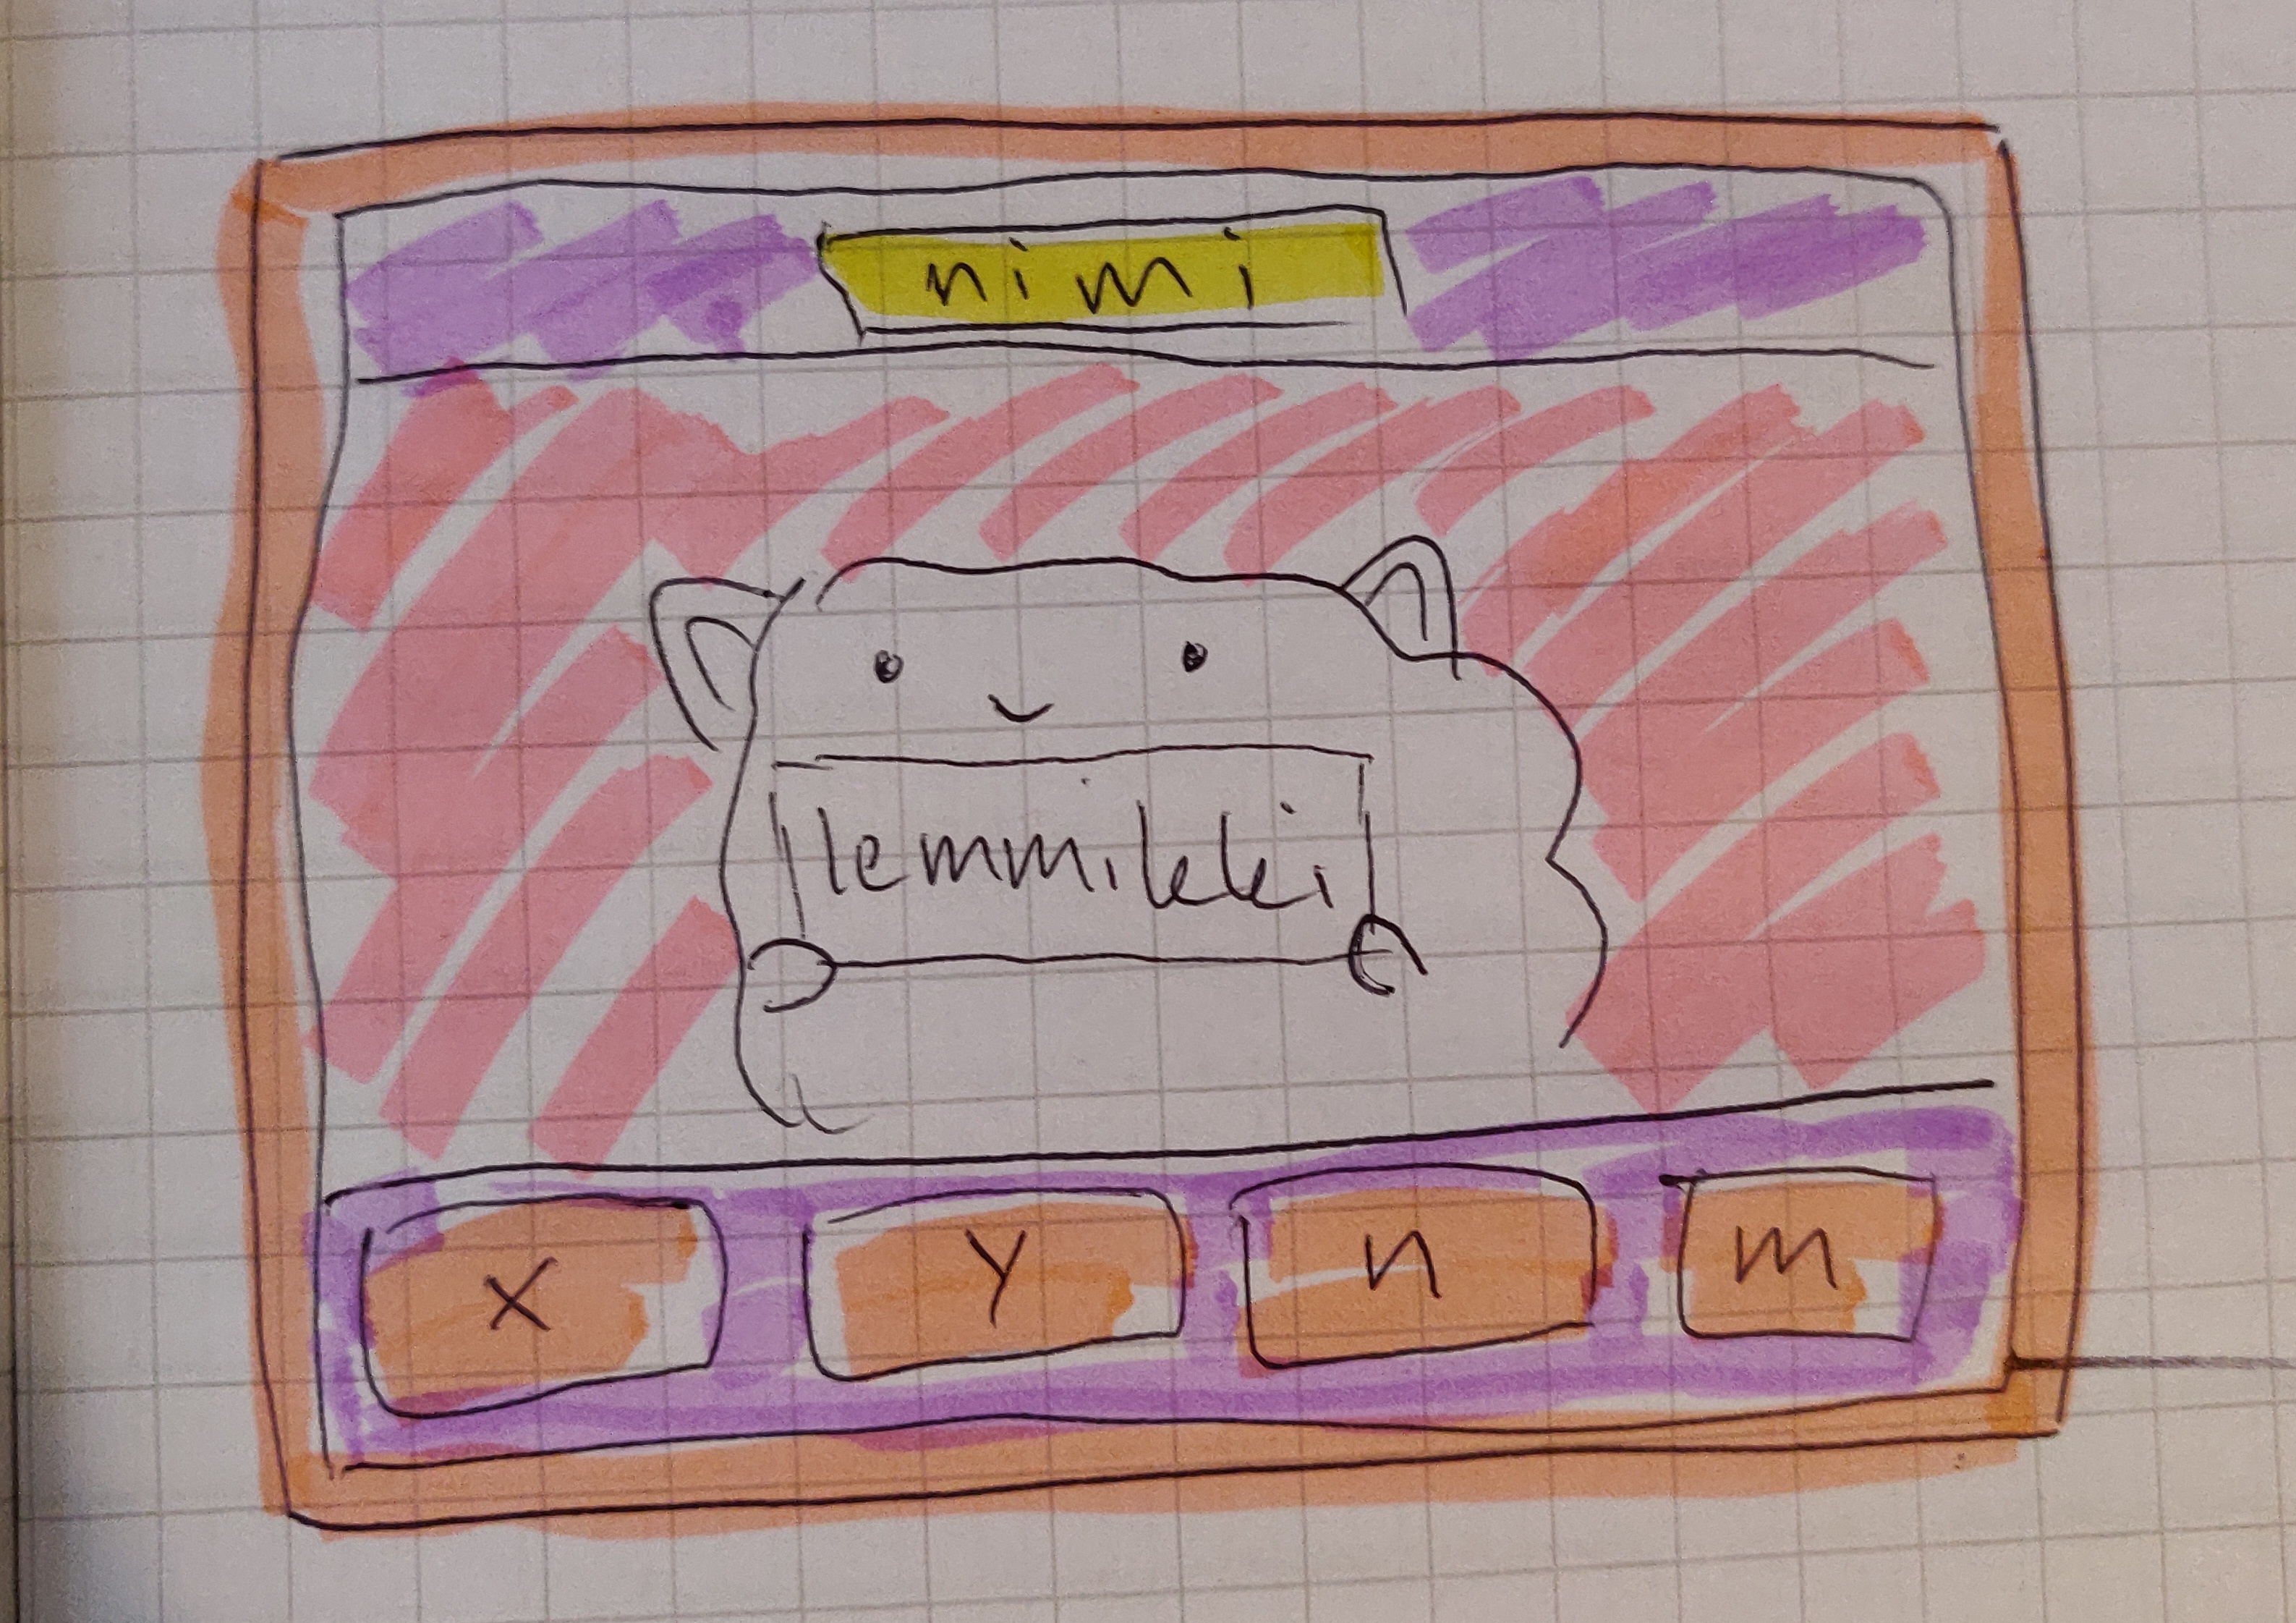 nimi
lemmikki
x y n m